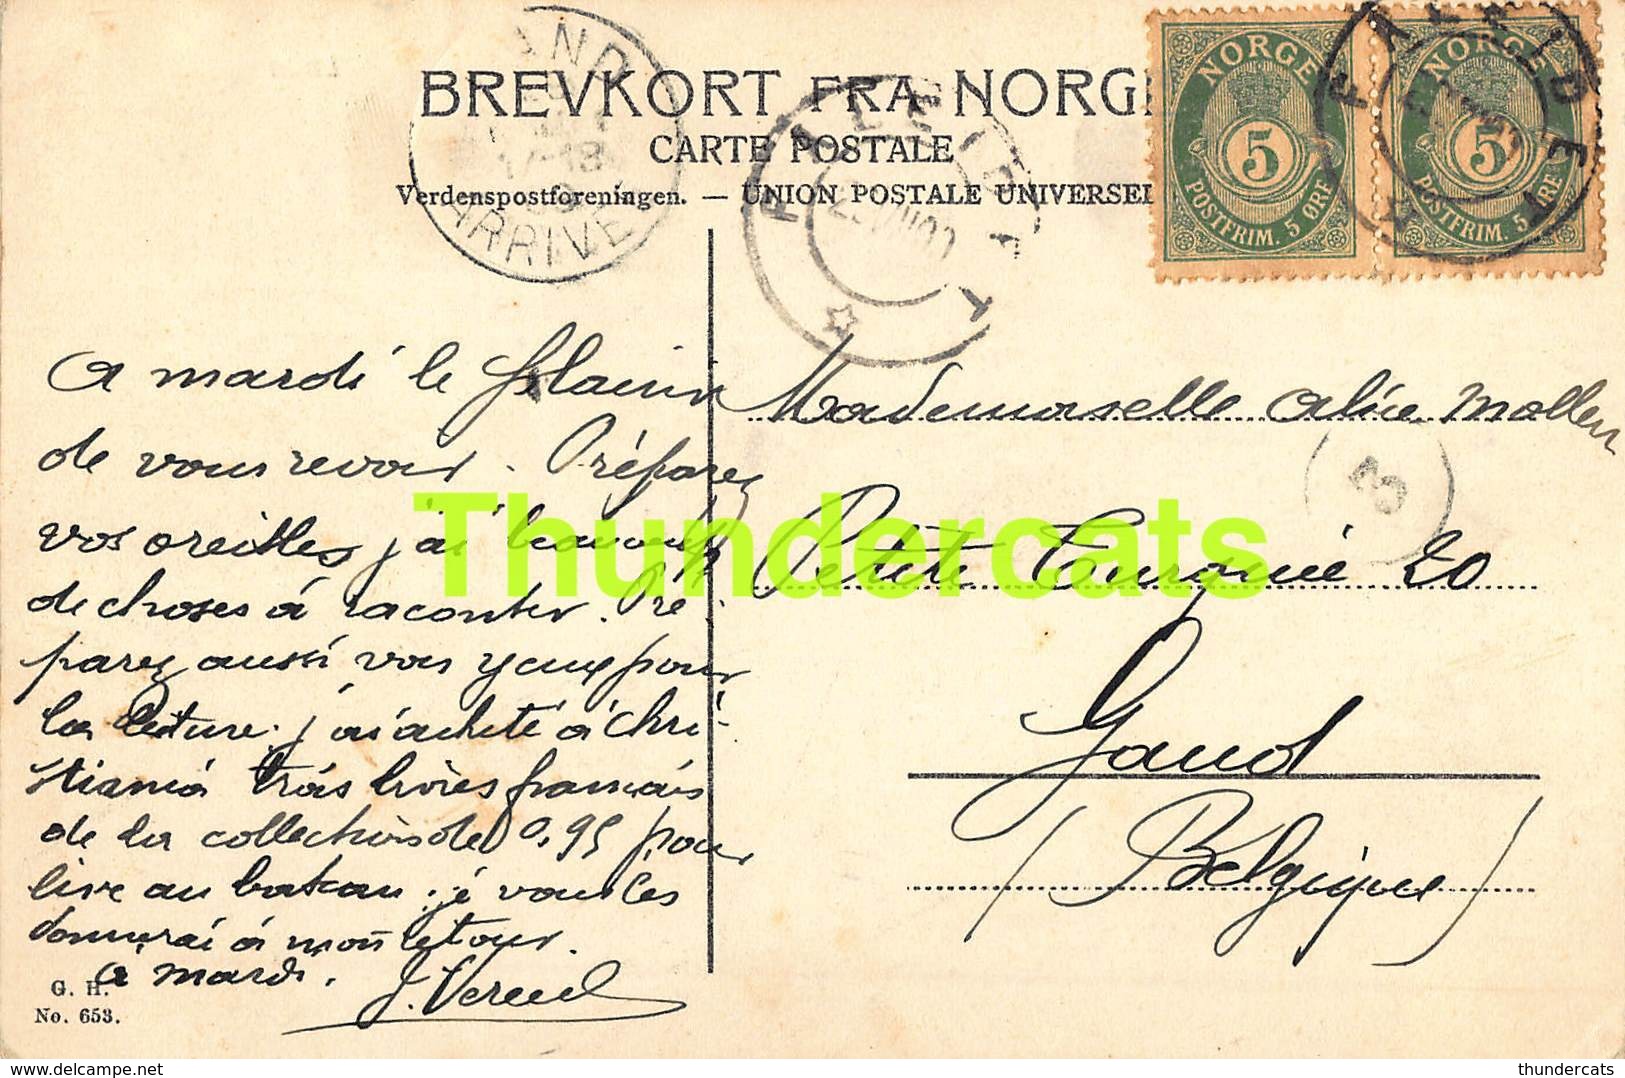 BREVKORT FRA NORGE
CARTE POSTALE
Verdenspostforeningen. — UNION POSTALE UNIVERSEL
NORGE
5
POSTFRIM. 5 ØRE
NORGE
5
POSTFRIM. 5 ØRE
FALEIDET
GAND
17-18
ARRIVEE
FALEIDET
A mardi le plaisir
de vous revoir. Préparez
vos oreilles j'ai beaucoup
de choses à raconter. Pré-
parez aussi vos yeux pour
la lecture. j'ai acheté à Chri-
stiania trois livres français
de la collection de 0,95 pour
lire au bateau. je vous les
donnerai à mon retour.
à mardi.
Mademoiselle Alice Mollen
Petite Turquie 20
Gand
(Belgique)
3
G. H.
No. 653.
Thundercats
www.delcampe.net
thundercats